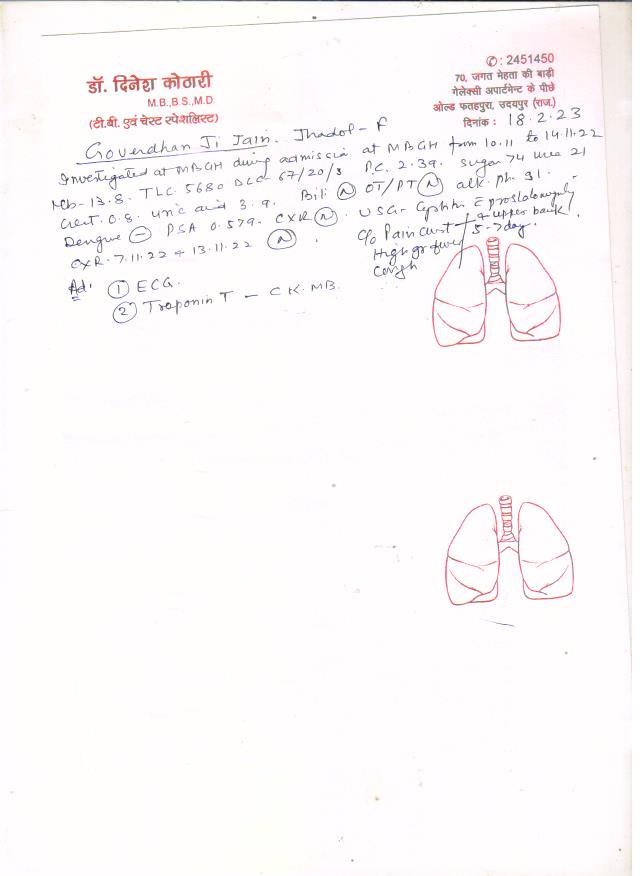 डॉ. दिनेश कोठारी
M.B.,B.S.,M.D
(टी.बी. एवं चेस्ट स्पेशलिस्ट)
✆: 2451450
70, जगत मेहता की बाड़ी
गेलेक्सी अपार्टमेन्ट के पीछे
ओल्ड फतहपुरा, उदयपुर (राज.)
दिनांक : 18.2.23
Goverdhan Ji Jain. Jhadol - F
Investigated at MBGH during admission at MBGH from 10.11 to 14.11.22
Hb-13.8. TLC. 5680 DLC- 67/20/3 P.C. 2.39. Sugar 74 urea 21
Creat. 0.8. uric acid 3.9. Bili (N) OT/PT (N) alk. ph. 91.
Dengue (-) PSA 0.579. CXR (N). USG- c̄ prostatomegaly
CXR. 7.11.22 & 13.11.22 (N).
C/o Pain chest & upper back
High gr fever 5-7 day.
Cough
Ad.
(1) ECG.
(2) Troponin T - CK. MB.